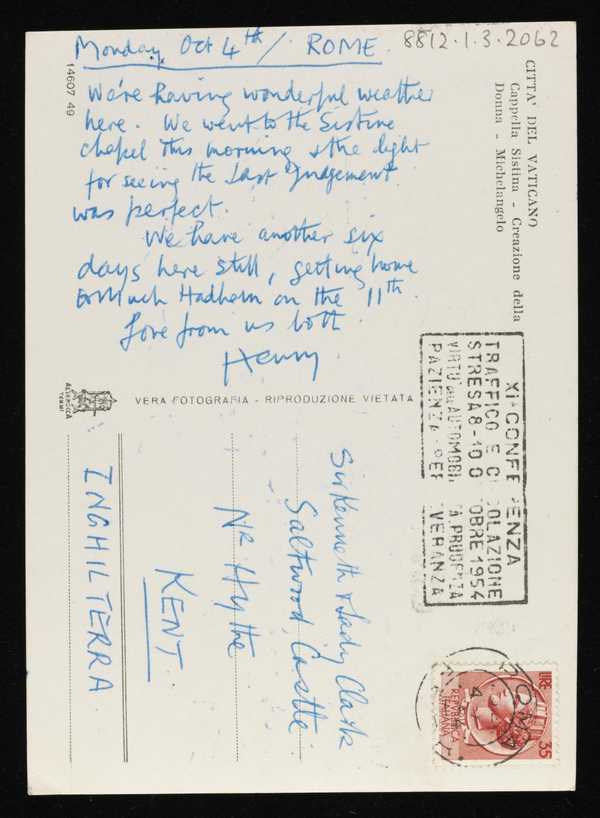 8812.1.3.2062
Monday Oct 4th / ROME.
We're having wonderful weather
here. We went to the Sistine
chapel this morning & the light
for seeing the Last Judgement
was perfect.
We have another six
days here still, getting home
to Much Hadham on the 11th.
Love from us both
Henry.
14607 49
CITTA' DEL VATICANO
Cappella Sistina - Creazione della
Donna - Michelangelo
VERA FOTOGRAFIA - RIPRODUZIONE VIETATA
ALTEROCCA
TERNI
XIª CONFERENZA
TRAFFICO E CIRCOLAZIONE
STRESA 8-10 OTTOBRE 1954
VIRTU' DELL'AUTOMOBILISTA PRUDENZA
PAZIENZA PERSEVERANZA
Sir Kenneth & Lady Clark
Saltwood Castle
Nr Hythe
KENT.
INGHILTERRA
ROMA
LIRE 35
REPVBBLICA
ITALIANA